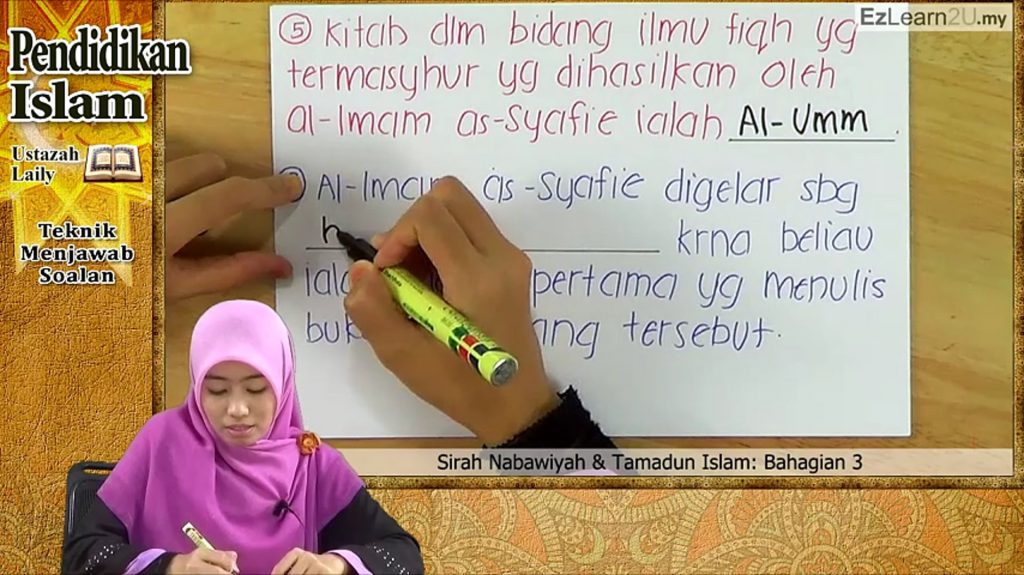 Pendidikan
Islam
Ustazah
Laily
Teknik
Menjawab
Soalan
EzLearn2U.my
5 Kitab dlm bidang ilmu fiqh yg
termasyhur yg dihasilkan oleh
al-Imam as-Syafie ialah Al-Umm.
Al-Imam as-Syafie digelar sbg
krna beliau
pertama yg menulis
tersebut.
Sirah Nabawiyah & Tamadun Islam: Bahagian 3